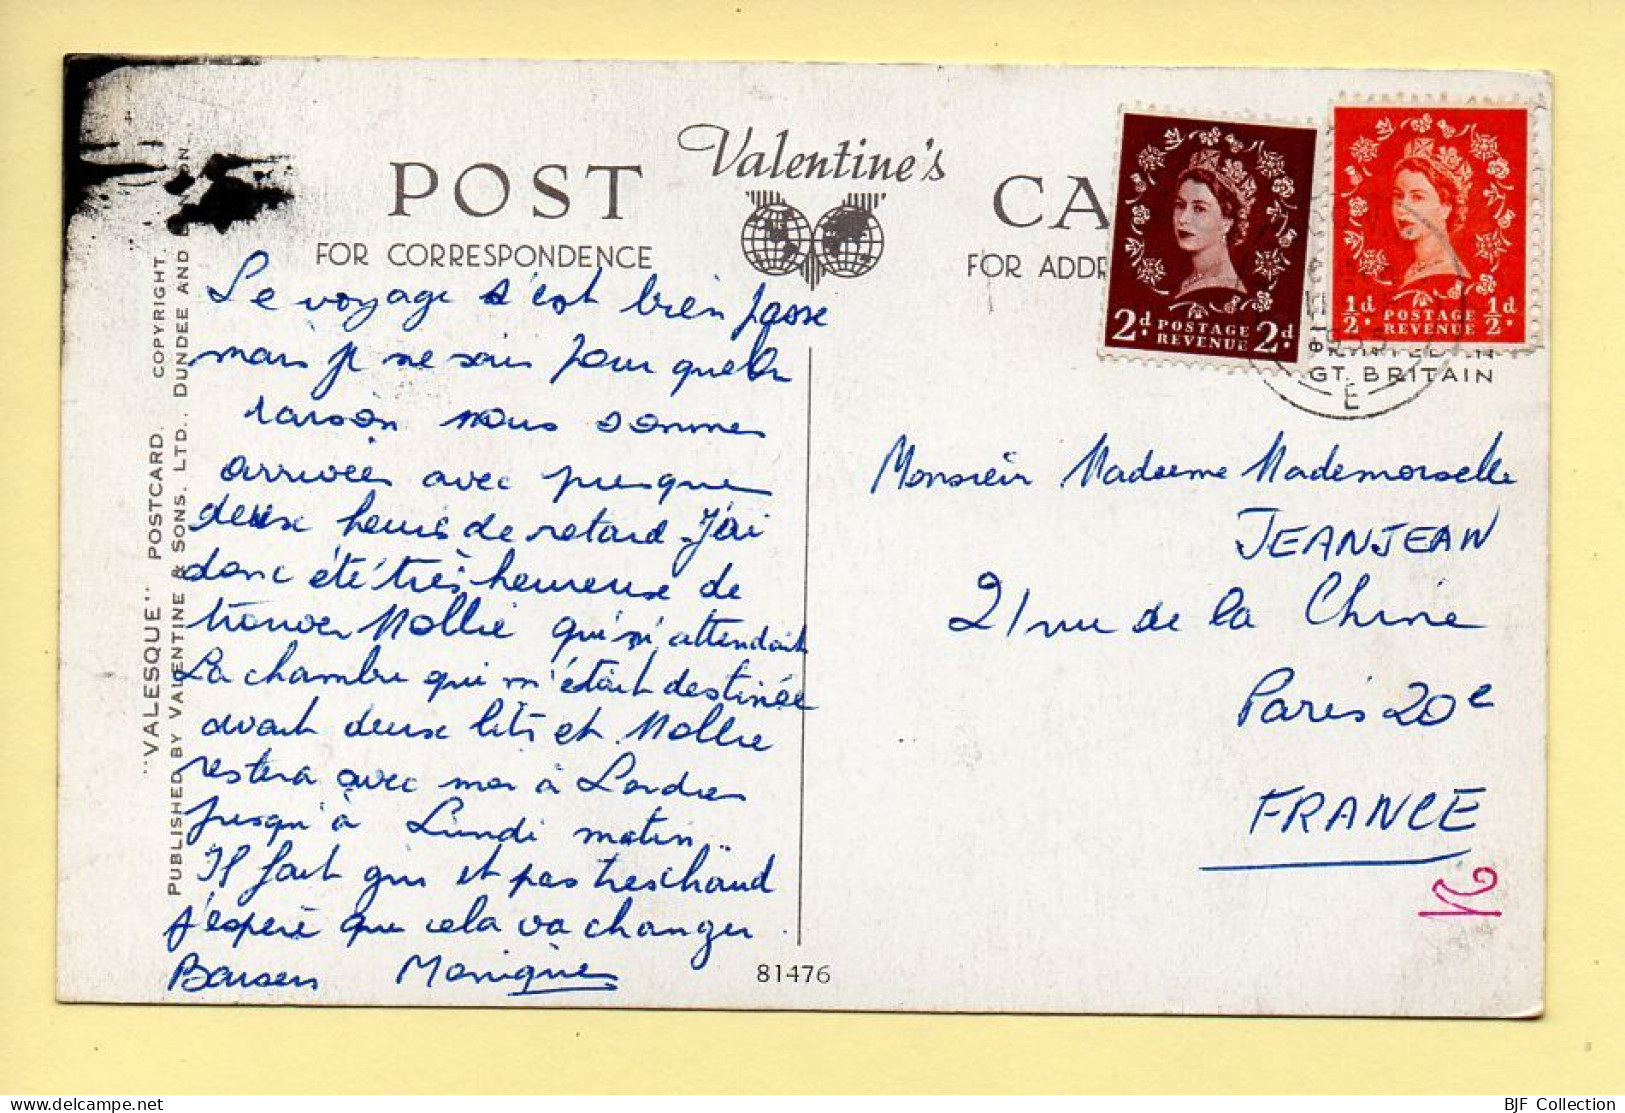 POST Valentine's CA
FOR CORRESPONDENCE FOR ADDR
2d. POSTAGE REVENUE 2d.
½d. POSTAGE REVENUE ½d.
GT. BRITAIN
E
"VALESQUE" POSTCARD. COPYRIGHT.
PUBLISHED BY VALENTINE & SONS. LTD., DUNDEE AND
Le voyage s'est bien passe
mais je ne sais pour quelle
raison nous sommes
arrivées avec presque
deux heures de retard J'ai
donc été très heureuse de
trouver Mollie qui m'attendait
La chambre qui m'était destinée
avait deux lits et Mollie
restera avec moi à Londres
jusqu'à Lundi matin..
Il fait gris et pas tres chaud
j'espère que cela va changer
Baisers Monique
81476
Monsieur Madame Mademoiselle
JEANJEAN
21 rue de la Chine
Paris 20e
FRANCE
BJF Collection